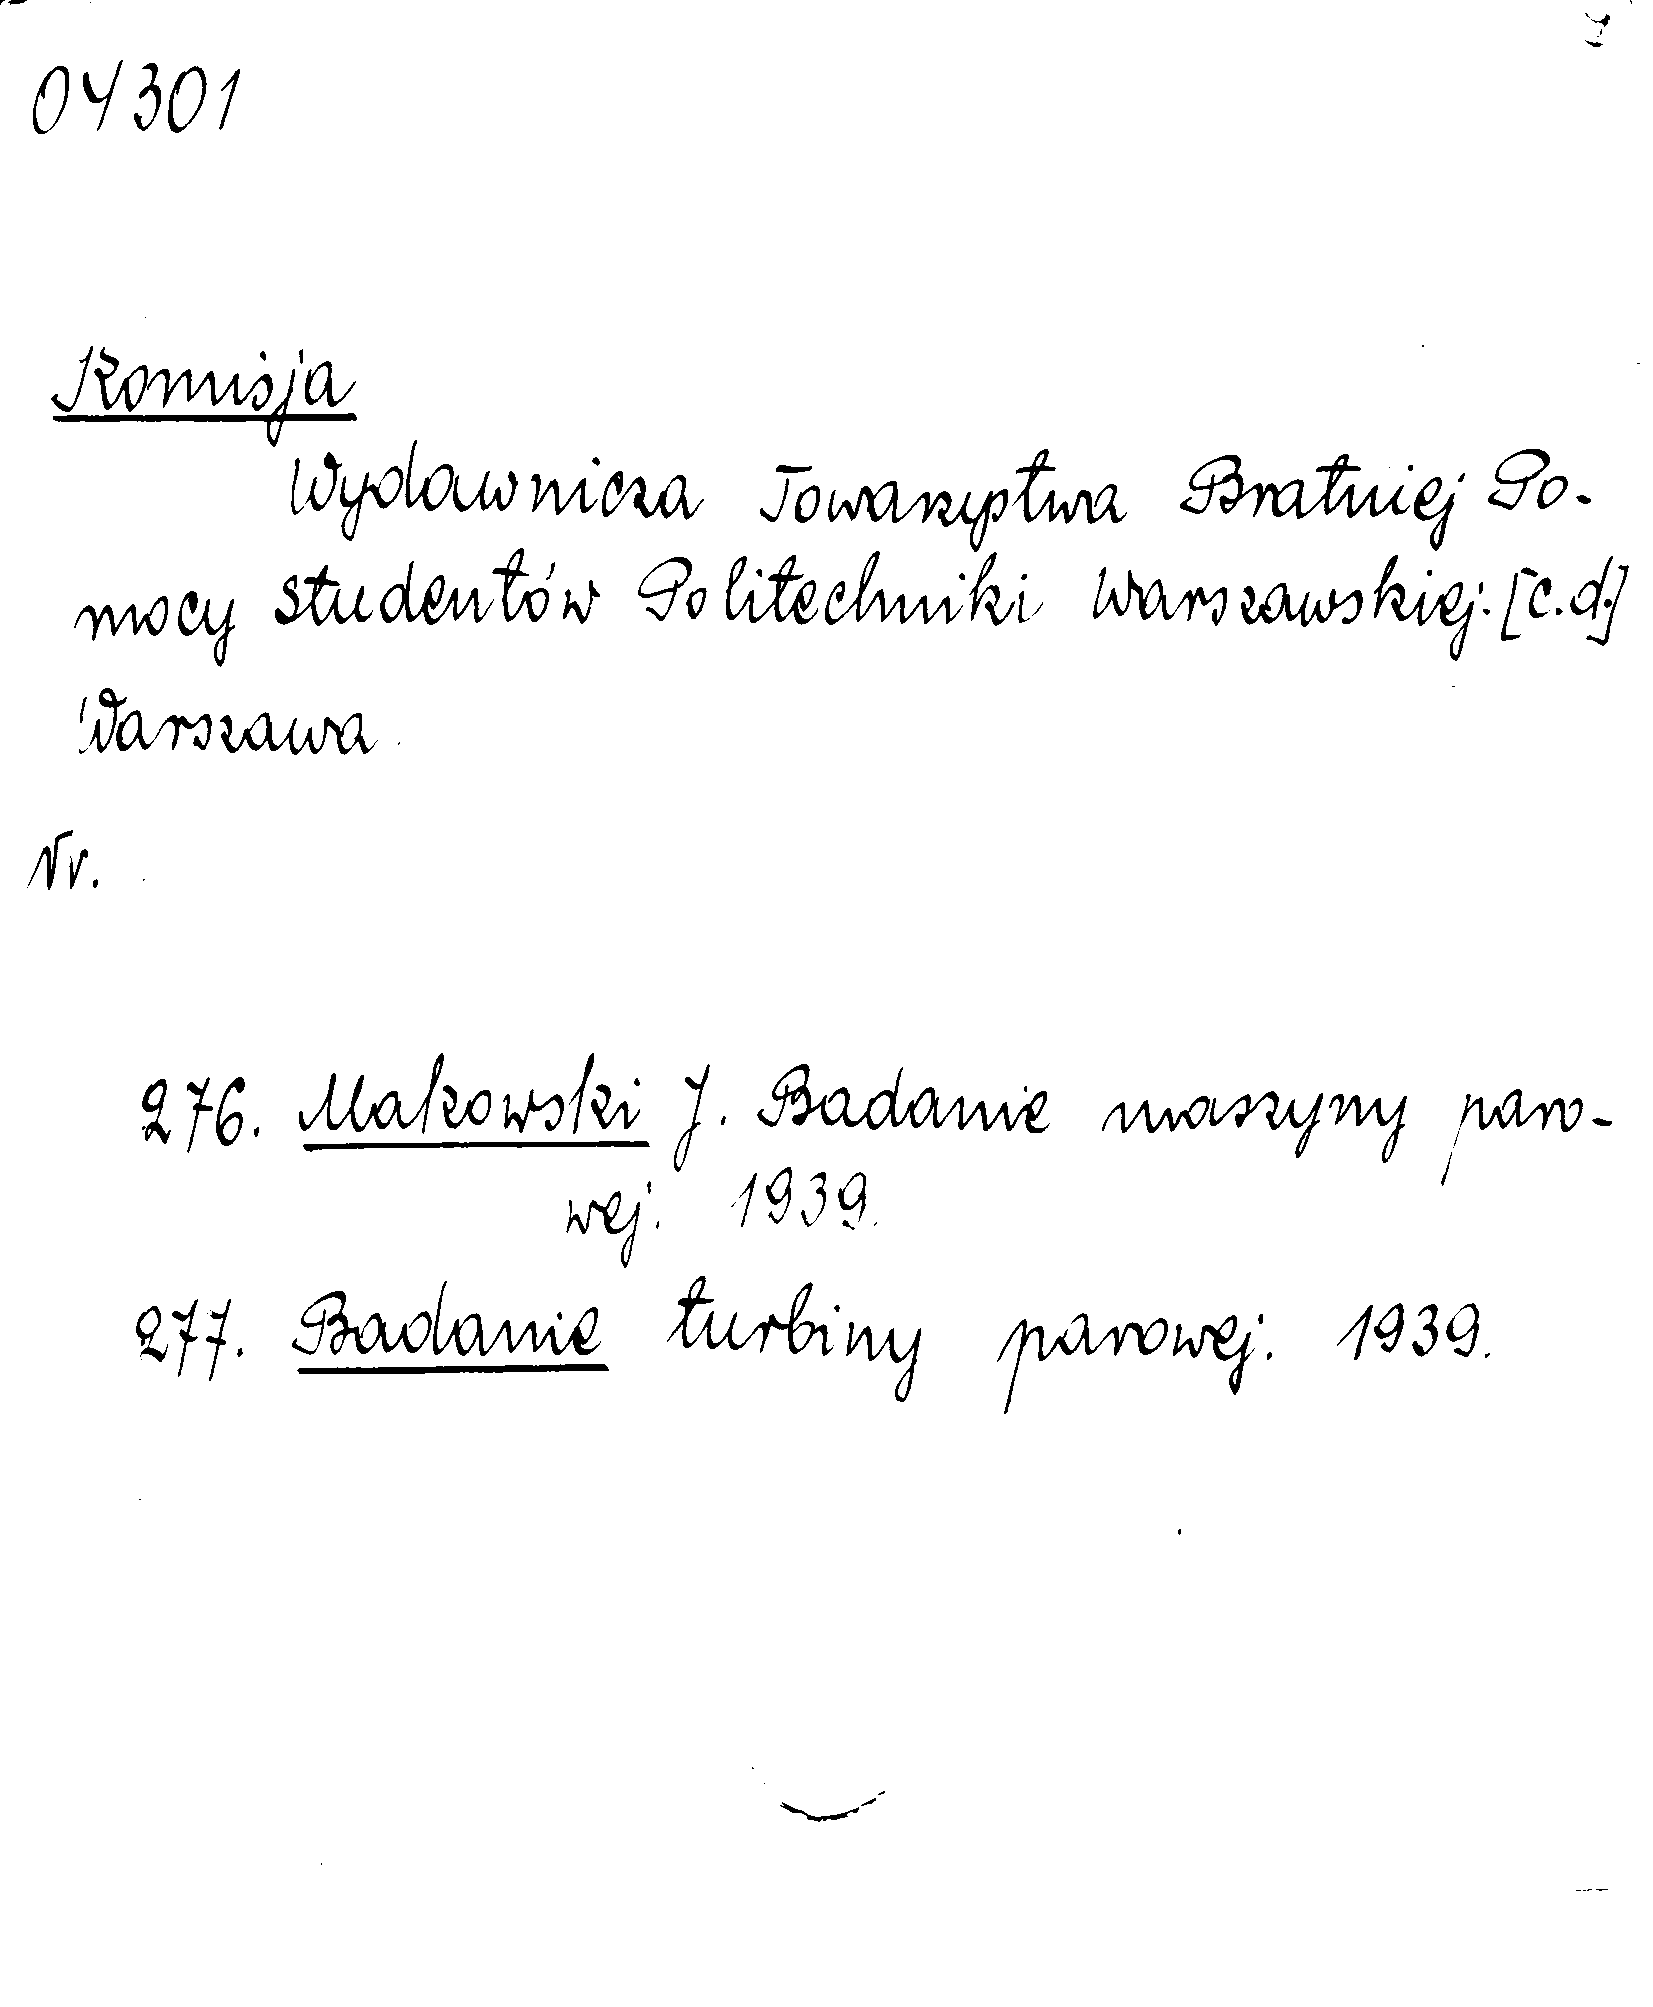 04301
Komisja
Wydawnicza Towarzystwa Bratniej Po-
mocy studentów Politechniki Warszawskiej. [c.d.]
Warszawa
Nr.
276. Makowski J. Badanie maszyny paro-
wej. 1939.
277. Badanie turbiny parowej. 1939.